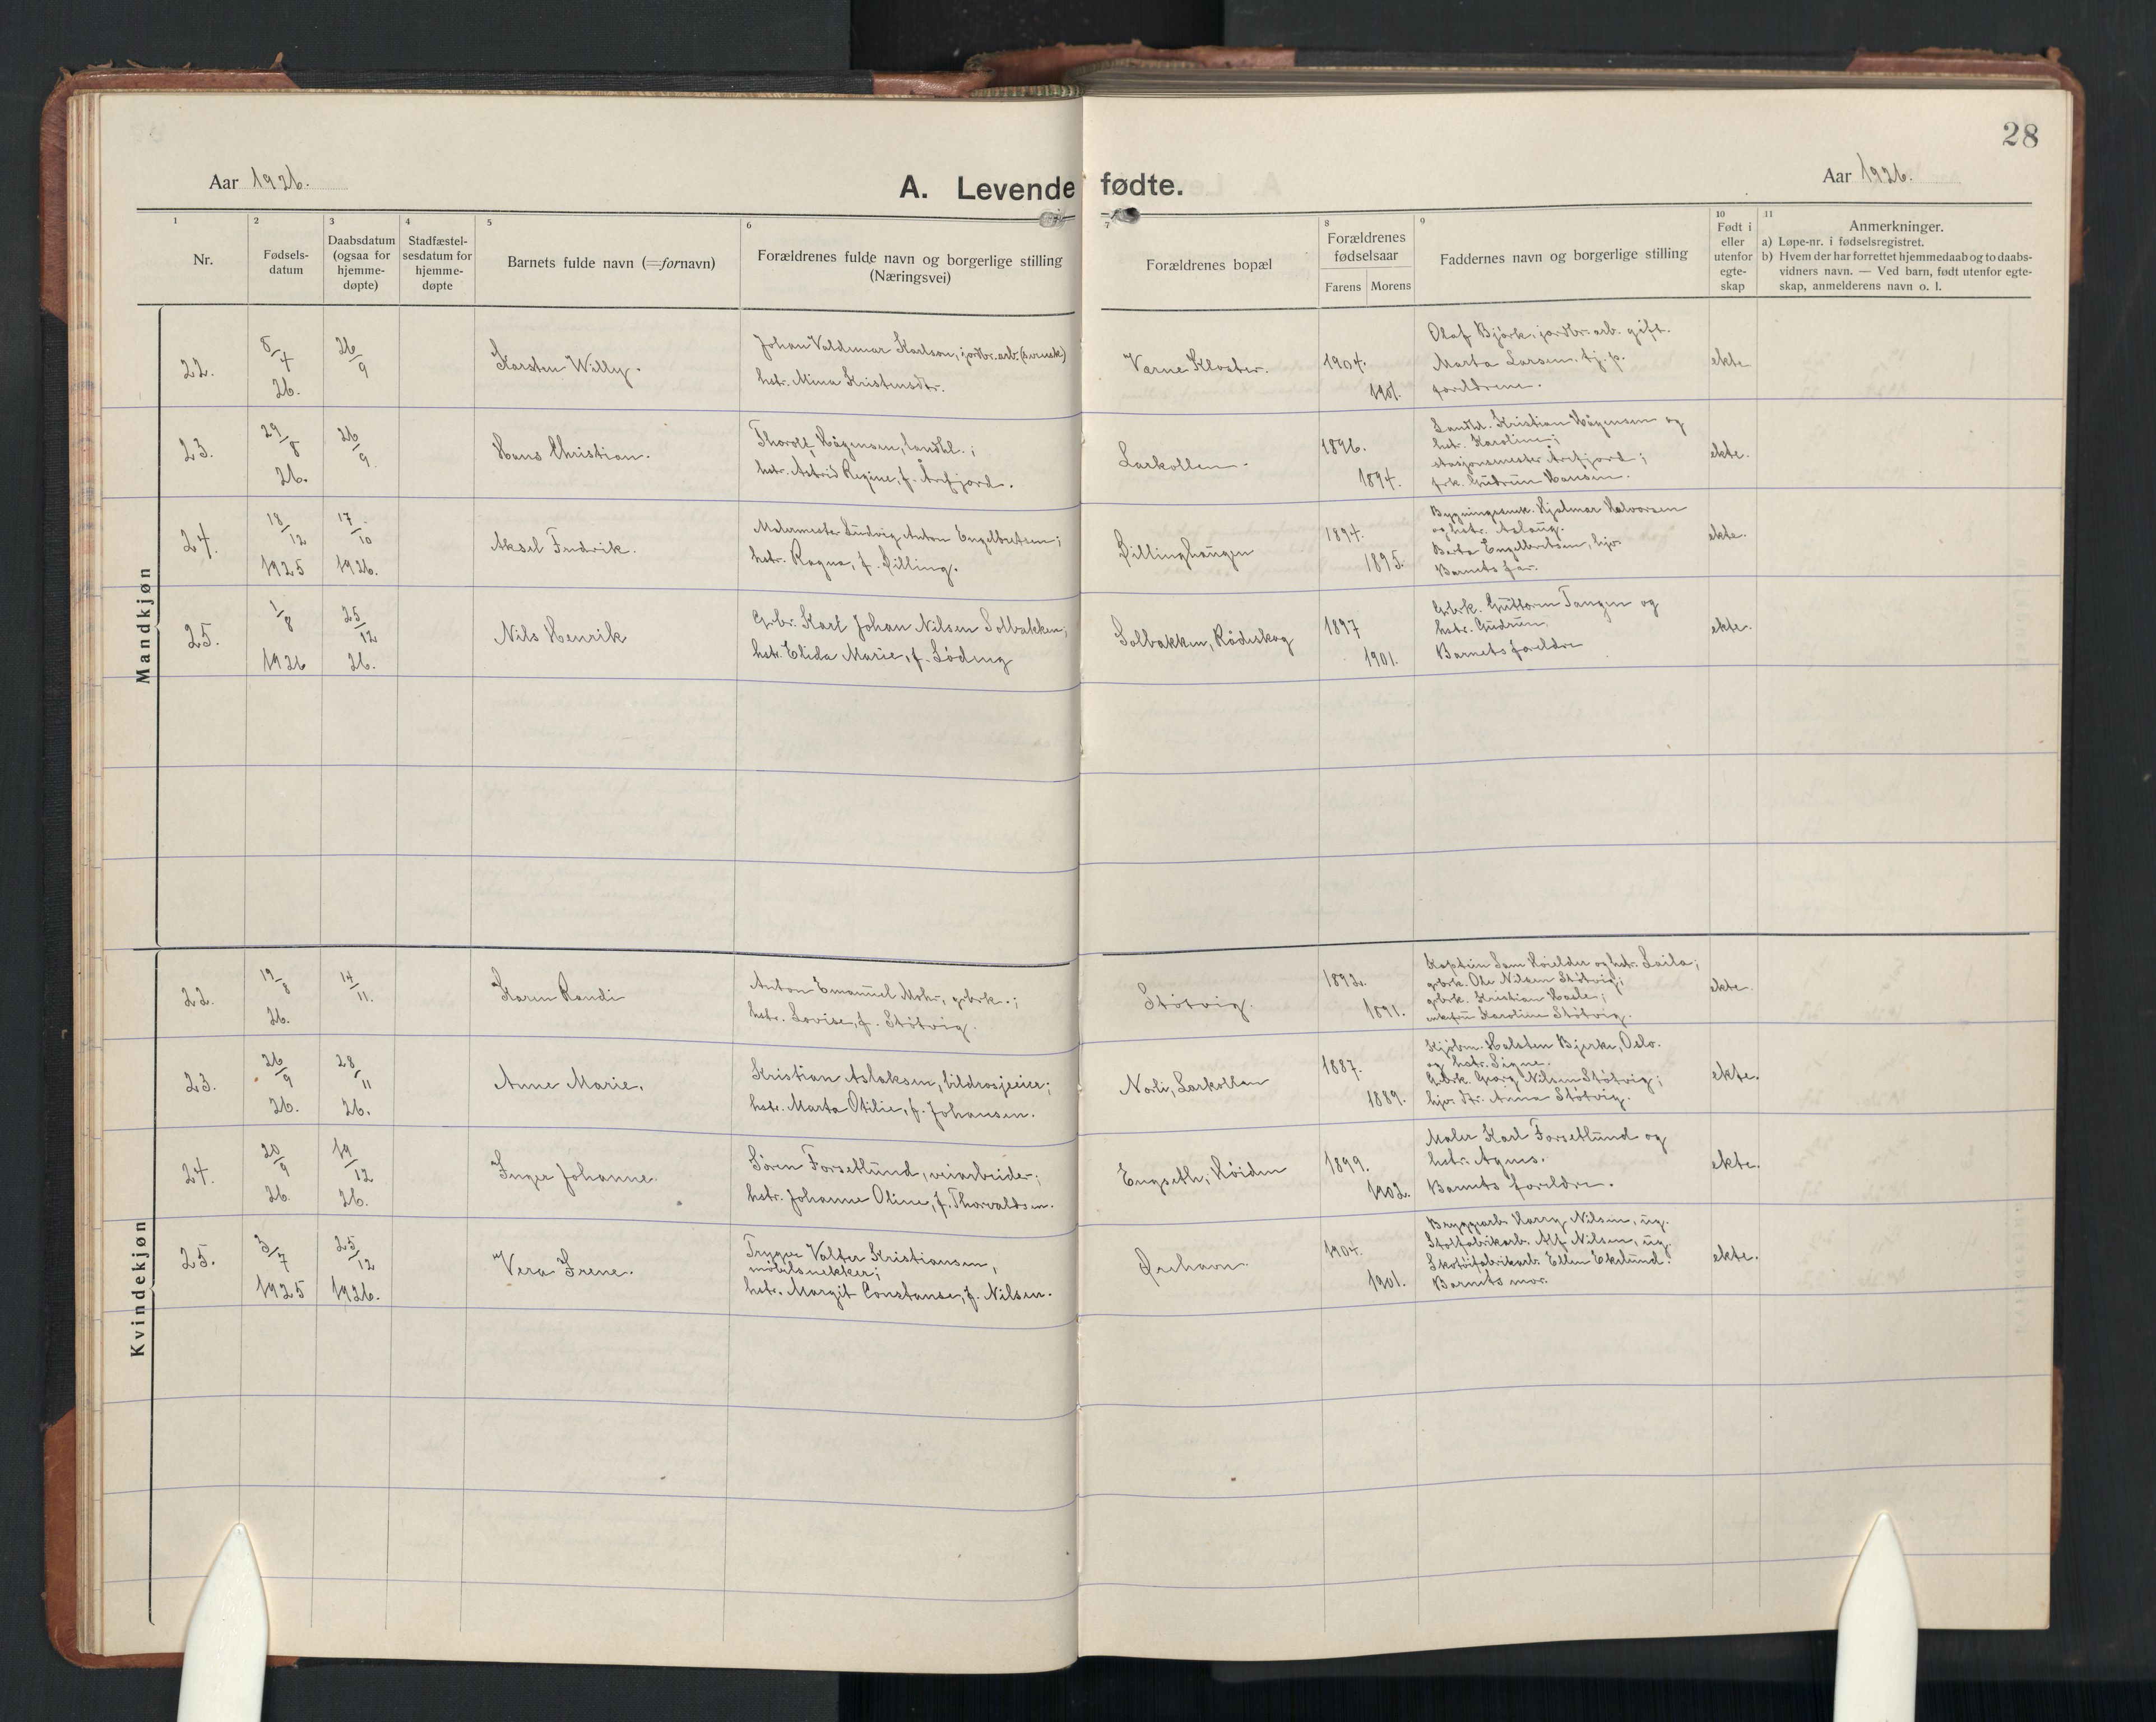 28
Aar 1926.
A. Levende fødte.
Aar 1926.
1 2 3 4 5 6 7 8 9 10 11
Nr.
Fødsels-
datum
Daabsdatum
(ogsaa for
hjemme-
døpte)
Stadfæstel-
sesdatum for
hjemme-
døpte
Barnets fulde navn (=fornavn)
Forældrenes fulde navn og borgerlige stilling
(Næringsvei)
Forældrenes bopæl
Forældrenes
fødselsaar
Farens Morens
Faddernes navn og borgerlige stilling
Født i
eller
utenfor
egte-
skap
Anmerkninger.
a) Løpe-nr. i fødselsregistret.
b) Hvem der har forrettet hjemmedaab og to daabs-
vidners navn. — Ved barn, født utenfor egte-
skap, anmelderens navn o. l.
Mandkjøn
22.
8/4
26.
26/9
Karsten Willy.
Johan Valdemar Karlson, jordbr.arb. (svensk)
hstr. Mina Kristensdtr.
Værne Kloster.
1904.
1901.
Olaf Bjørk, jordbr.arb. gift.
Marta Larsen, tj. p.
foreldrene.
ekte
23.
29/8
26.
26/9.
Hans Christian.
Thorolf Hågensen, landhl.;
hstr. Astrid Regine, f. Årefjord.
Larkollen.
1896.
1894.
Landhl. Kristian Hågensen og
hstr. Karoline;
stasjonsmester Årefjord;
frk. Gudrun Hansen.
ekte.
24.
18/12
1925
17/10
1926.
Aksel Fredrik.
Malermester Ludvig Anton Engelbretsen;
hstr. Ragna, f. Dilling.
Dillinghaugen
1894.
1895.
Bygningssnek. Hjalmar Halvorsen
og hstr. Aslaug.
Berta Engelbretsen, hjv.
Barnets far.
ekte.
25.
1/8
1926
25/12
26.
Nils Henrik
Grbr. Karl Johan Nilsen Solbakken;
hstr. Elida Marie, f. Løding
Solbakken, Rødskog
1897
1901.
Grbrk. Guttorm Tangen og
hstr. Gudrun.
Barnets foreldre
ekte.
Kvindekjøn
22.
19/8
26.
14/11.
Karen Randi
Anton Emanuel Mohr, grbrk.;
hstr. Lovise, f. Støtvig.
Støtvig.
1892.
1891.
Kaptein Sam Høielder og hstr. Laila;
grbrk. Ole Nilsen Støtvig;
grbrk. Kristian Hasle;
enkefru Karoline Støtvig.
ekte.
23.
26/9
26.
28/11
26.
Anne Marie.
Kristian Aslaksen, bildrosjeeier;
hstr. Marta Otilie, f. Johansen.
Norli, Larkollen
1887.
1889.
Kjøbm. Halsten Bjerke, Oslo.
og hstr. Signe.
Grbrk. Georg Nilsen Støtvig;
hjv. dtr. Anna Støtvig.
ekte.
24.
20/9
26.
19/12
26.
Inger Johanne.
Søren Forsetlund, veiarbeider;
hstr. Johanne Oline, f. Thorvaldsen.
Engseth, Høiden
1899.
1902.
Maler Karl Forsetlund og
hstr. Agnes.
Barnets foreldre.
ekte.
25.
3/7
1925
25/12
1926.
Vera Irene.
Trygve Valter Kristiansen,
møbelsnekker;
hstr. Margit Constanse, f. Nilsen.
Ørehavn.
1904.
1901.
Bryggearb. Harry Nilsen, ug.
Stolfabrikarb. Alf Nilsen, ug.
Skotøifabrikarb. Ellen Ekelund.
Barnets mor.
ekte.